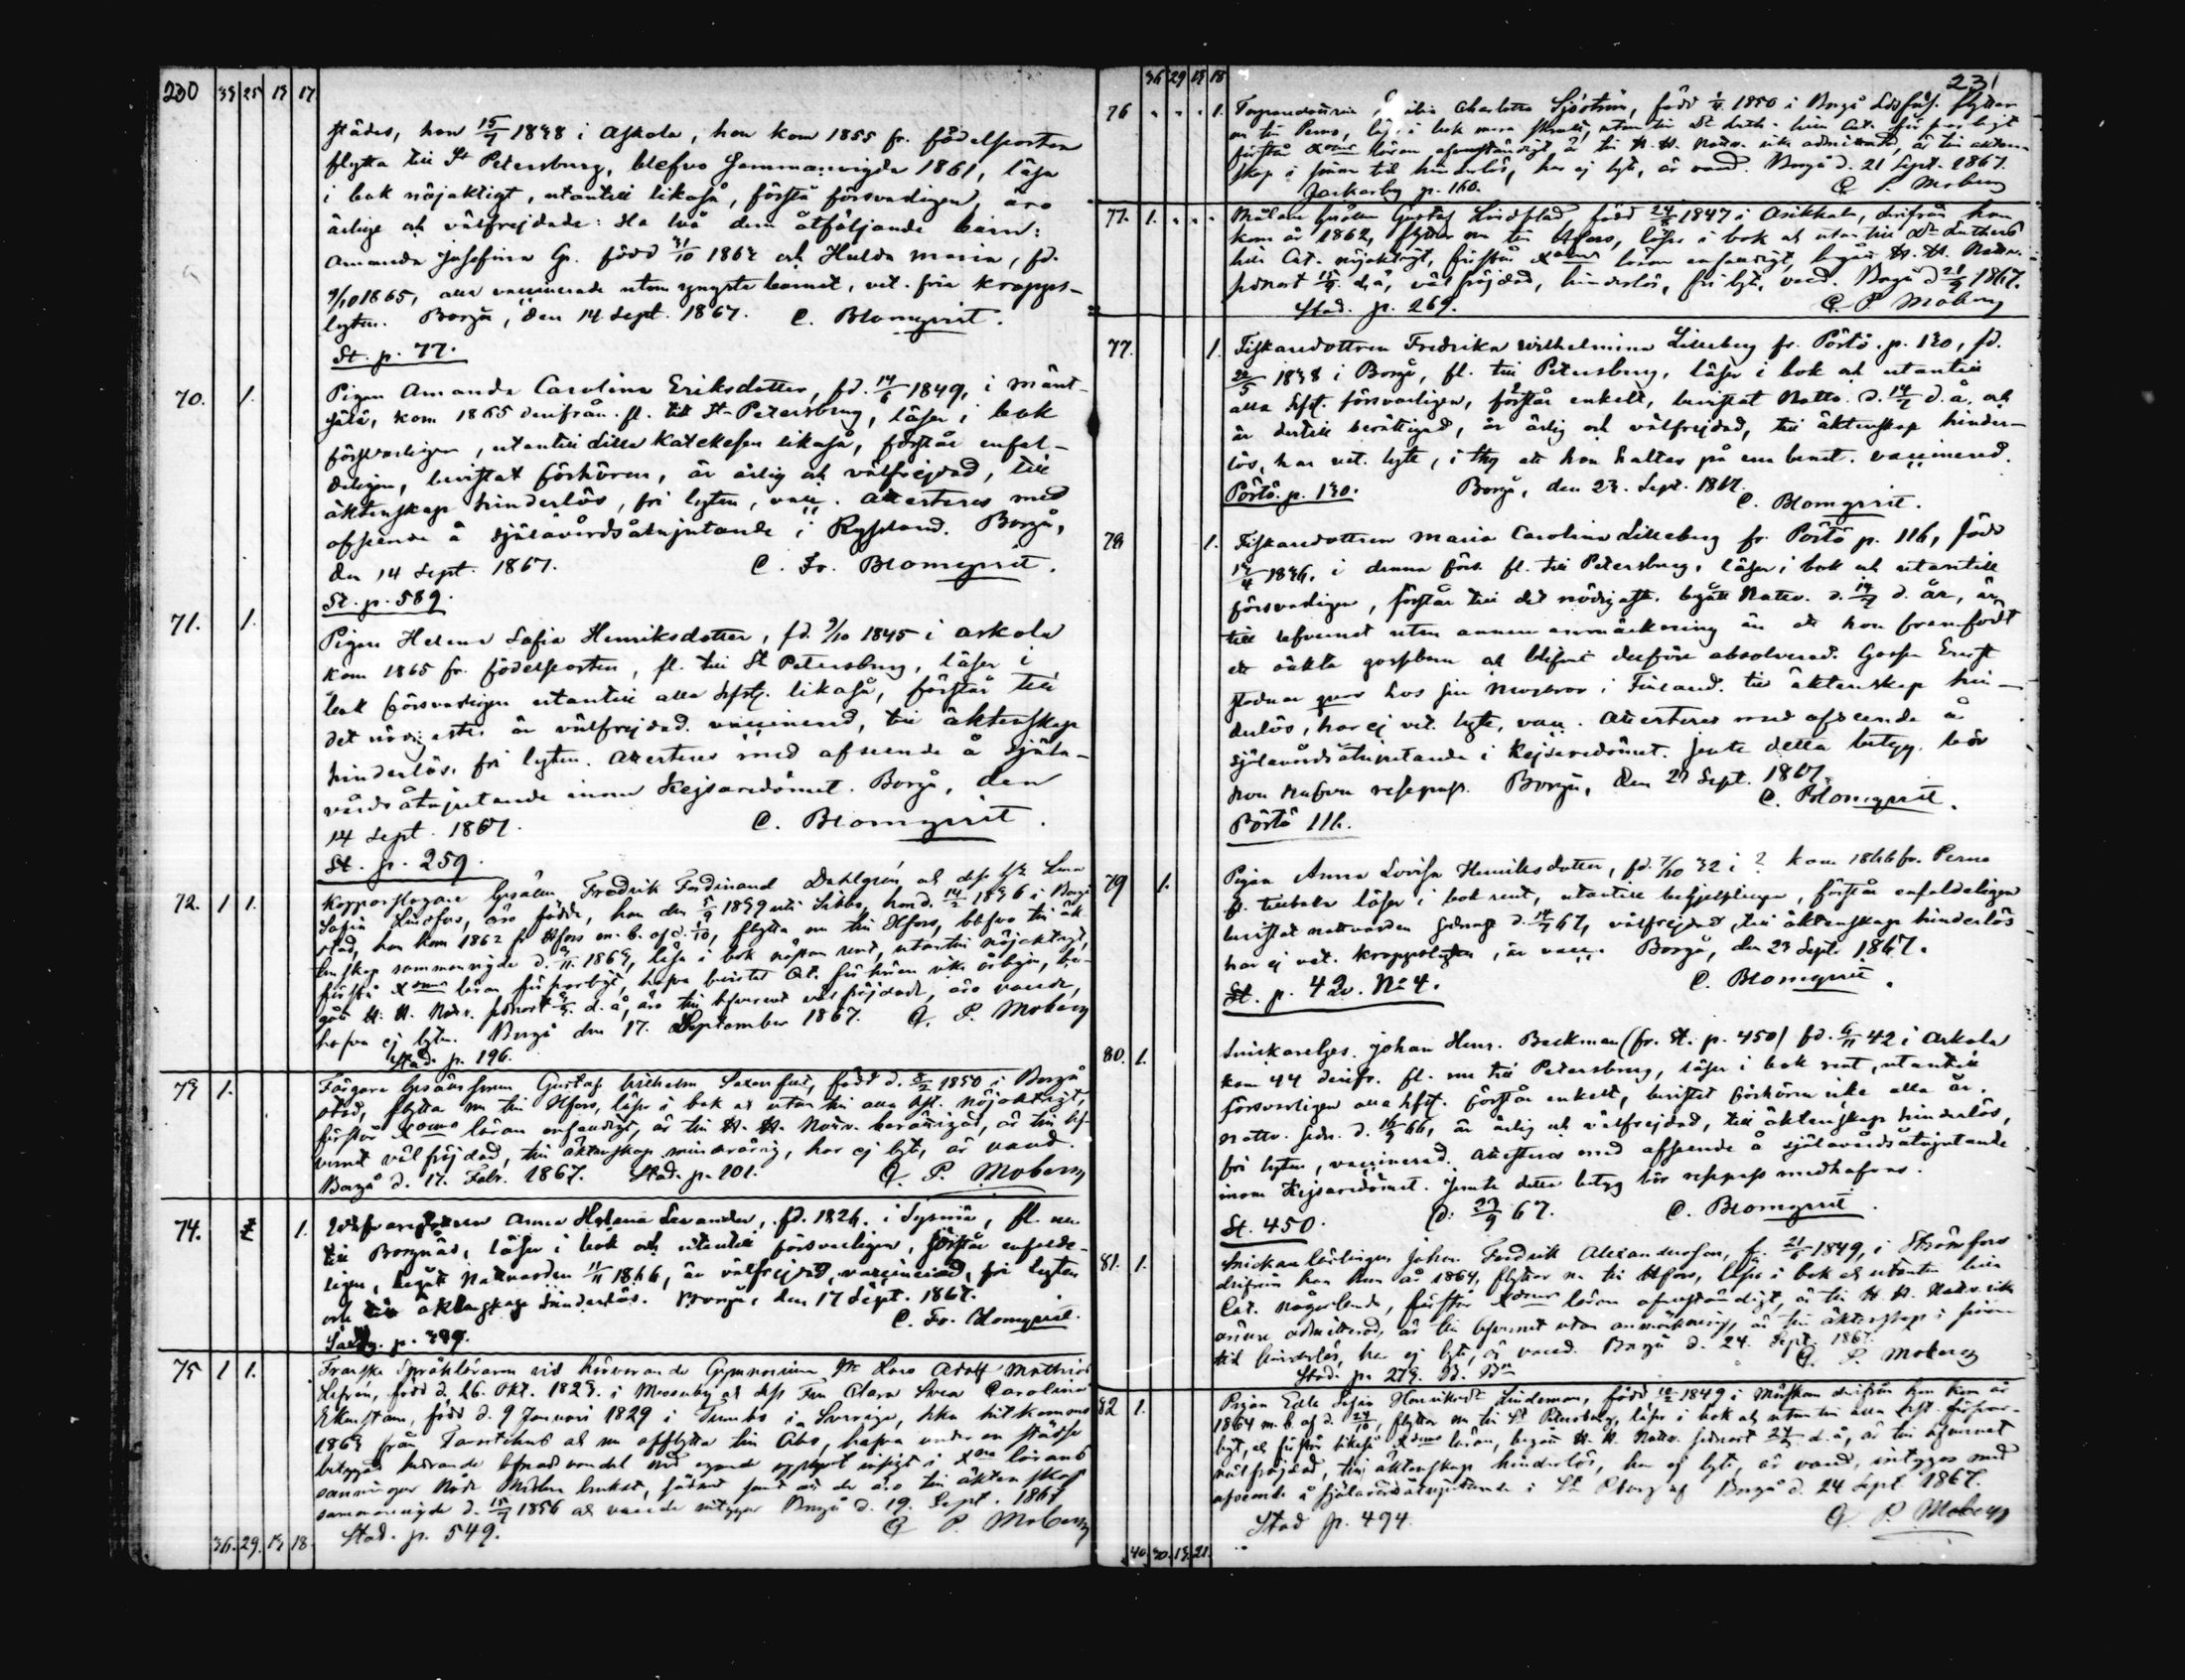 230 33 25 13 17.
städes, hon 15/7 1838 i Askola, hon kom 1855 fr. födelseorten
flytta till St Petersburg, blefvo sammanvigda 1861, läsa
i bok nöjaktigt, utantill likaså, förstå försvarligen, äro
ärlige och välfrejdade: Ha två dem åtföljande barn:
Amanda Josefina G. född 31/10 1862 och Hulda Maria, fd.
9/10 1865, alla vaccinerade utom yngsta barnet, vet. fria kropps-
lyten. Borgå, den 14 Sept. 1867. C. Blomqvist.
St. p. 77.
70. 1. Pigan Amanda Carolina Eriksdotter, fd. 14/6 1849, i Mänt-
sälä, kom 1865 derifrån. fl. till St Petersburg, läser i bok
försvarligen, utantill Lilla Katekesen likaså, förstår enfal-
deligen, bevistat förhören, är ärlig och välfrejdad, till
äktenskap hinderlös, fri lyten, vacc. Attesteras med
afseende å själavårdsåtnjutande i Ryssland. Borgå,
den 14 Sept. 1867. C. Fr. Blomqvist.
St. p. 589.
71. 1. Pigan Helena Sofia Henriksdotter, fd. 9/10 1845 i Askola
kom 1865 fr. födelseorten, fl. till St Petersburg, läser i
bok försvarligen utantill alla hfst. likaså, förstår till
det nödigaste är välfrejdad. vaccinerad, till äktenskap
hinderlös, fri lyten. Attesteras med afseende å själa-
vårdsåtnjutande inom Kejsaredömet. Borgå, den
14 Sept. 1867. C. Blomqvist.
St. p. 259.
72. 1 1. Kopparslagare Gesällen Fredrik Ferdinand Dahlgrén och dess h:u Lena
Sofia Lindfors, äro födde, han den 5/9 1839 uti Sibbo, hon d. 14/2 1836 i Borgå
stad, han kom 1862 fr Hfors m. b. af d. 1/10, flytta nu till Hfors, blefvo till äk-
tenskap sammanvigde d. 1863, läsa i bok nöjsam rent, utantill nöjaktigt,
förstå Xoms läran försvarligt, hafva bevistat Cat. förhören icke årligen, be-
gått H. H. Nattv. sednast d. å, äro till lefvernet väl fräjdade, äro vaccde,
hafva ej lyten. Borgå den 17. September 1867. G. P. Moberg
Stad. p. 196.
73 1. Färgare Gesällen Gustaf Wilhelm född d. 1850 i Borgå
stad, flytta nu till Hfors, läser i bok och utan till alla hfst. nöjaktigt,
förstår Xoms läran enfaldigt, är till H. H. Nattv. berättigad, är till lef-
vernet väl fräjdad, till äktenskap minderårig, har ej lyte, är vaccd.
Borgå d. 17. Febr. 1867. Stad. p. 201. G. P. Moberg
74. 1. Anna Helena Levander, fd. 1826. i Sysmä, fl. nu
till Borgnäs, läser i bok och utantill försvarligen, förstår enfalde-
ligen, begått Nattvarden 11/11 1866, är välfrejdad, vaccinerad, fri lyten
och till äktenskap hinderlös. Borgå, den 17 Sept. 1867.
p. 399. C. Fr. Blomqvist.
75 1 1. Franska Språkläraren vid härvarande Gymnasium Mr Lars Adolf Mathias
född d. 26. Okt. 1823. i och dess Fru Clara Svea Carolina
Ekenstam, född d. 9 Januari 1829 i Tumbo i Sverige, hitkomna
1863 från Tavastehus och nu afflytta till Åbo, hafva under en städse
hedrande lefnad vandel med egande insigt i Xna lärans
sanningar Nåde Medlen brukat, samt att de äro till äktenskap
sammanvigde d. 15/7 1856 och vaccde intygar Borgå d. 19. Sept. 1867
Stad. p. 549. G. P. Moberg
36. 29. 13 18.
36 29 13 18 231
76 " " " 1. Charlotta Sjöström, född 1850 i Borgå Lds förs. flyttar
nu till Perno, i bok utan till
förstår Xoms läran till H. H. Nattv. icke admitterad, är till äkten-
skap i hinderlös, har ej lyte, är vaccd. Borgå d. 21 Sept. 1867.
Jackarby p. 160. G. P. Moberg
77. 1. " " " Målare Gesällen Gustaf Lindblad, född 24/5 1847 i Asikkala, derifrån han
kom år 1862, flyttar nu till Hfors, läser i bok och utan till Dr Luthers
Cat. nöjaktigt, förstår Xoms läran enfaldigt, begått H. H. Nattv.
sednast d. å, väl fräjdad, hinderlös, fri lyte, vaccd. Borgå d 21/9 1867.
Stad. p. 269. G. P. Moberg
77. 1. Fiskaredottren Fredrika Wilhelmina Lilleberg fr. Pörtö. p. 130, fd.
22/5 1838 i Borgå, fl. till Petersburg, läser i bok och utantill
alla hfst. försvarligen, förstår enkelt, bevistat Nattv. d. 14/7 d. å. och
är dertill berättigad, är ärlig och välfrejdad, till äktenskap hinder-
lös, har vet. lyte, i thy att hon haltar på ena benet. vaccinerad.
Pörtö. p. 130. Borgå, den 23. Sept. 1867.
C. Blomqvist.
78 1. Fiskaredottren Maria Carolina Lilleberg fr. Pörtö p. 116, född
1836. i denna förs. fl. till Petersburg, läser i bok och utantill
försvarligen, förstår till det nödigaste. begått Nattv. d. 14/7 d. år, är
till lefvernet utan annan anmärkning än att hon framfödt
ett oäkta gossebarn och blifvit derföre absolverad. Gossen Ernst
stadnar qvar hos sin Morbror i Finland. till äktenskap hin-
derlös, har ej vet. lyte, vacc. Attesteras med afseende å
själavårdsåtnjutande i Kejsaredömet. Jemte detta betyg bör
hon hafva respass. Borgå, den 23 Sept. 1867.
C. Blomqvist.
Pörtö 116.
79 1. Pigan Anna Lovisa Henriksdotter, fd. 7/10 32 i ? kom 1866 fr. Perno
fl. tillbaka läser i bok rent, utantill behjelpligen, förstår enfaldeligen
bevistat nattvarden sednast d. 14/7 67, välfrejdad, till äktenskap hinderlös
har ej vet. kroppslyten, är vacc. Borgå, den 23 Sept. 1867.
C. Blomqvist.
St. p. 42. No 4.
80. 1. Snickareges. Johan Henr. Beckman (fr. St. p. 450) fd. 6/11 42 i Askola
kom 44 derifr. fl. nu till Petersburg, läser i bok rent, utantill
försvarligen alla hfst. förstår enkelt, bevistat förhören icke alla år.
nattv. sedn. d. 16/9 66, är ärlig och välfrejdad, till äktenskap hinderlös,
fri lyten, vaccinerad. Attesteras med afseende å själavårdsåtnjutande
inom Kejsaredömet. Jemte detta betyg bör respass medhafvas.
St. 450. d. 23/9 67. C. Blomqvist.
81. 1. Snickare lärlingen Johan Fredrik Alexandersson, f. 21/6 1849, i Strömfors
derifrån han kom år 1864, flyttar nu till Hfors, läser i bok och utantill
Cat. någorlunda, förstår Xoms läran är till H. H. Nattv. icke
ännu admitterad, är till lefvernet utan anmärkning, är till äktenskap i
tid hinderlös, har ej lyte, är vaccd. Borgå d. 24. Sept. 1867.
Stad. p. 279. G. P. Moberg
82 1. Pigan Edla Sofia Henriksdr Lindeman, född 1849 i Mörskom derifrån hon kom år
1864 m. b. af d. 24/10, flyttar nu till St Petersburg, läser i bok och utan till alla hfst. försvar-
ligt, och förstår likaså Xoms läran, begått H. H. Nattv. sednast d. å, är till lefvernet
väl fräjdad, till äktenskap hinderlös, har ej lyte, är vaccd, intygas med
afseende å själavårdsåtnjutande i St Pburg af Borgå d. 24 Sept. 1867.
Stad p. 474. G. P. Moberg
40. 30. 13. 21.